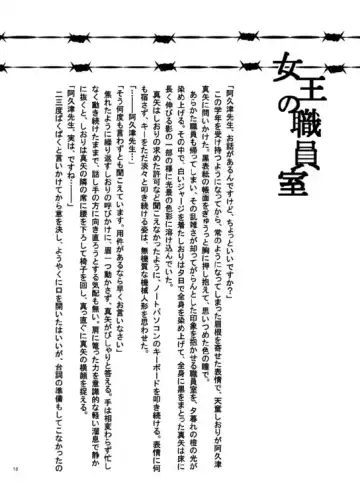 女王の職員室
「阿久津先生、お話があるんですけど、ちょっといいですか？」
この学年を受け持つようになってから、常のようになってしまった眉根を寄せた表情で、天童しおりが阿久津
真矢に問いかけた。黒表紙の帳面をぎゅうっと胸に押し抱えて、思いつめた色の瞳で。
あらかた職員も帰ってしまい、その乱雑さが却ってがらんとした印象を抱かせる職員室を、夕暮れの橙の光が
染め上げる。その中で、白いジャージを着たしおりは夕日で全身を染め上げて、全身に黒をまとった真矢は床に
長く伸びる影の一部の様に光景の色彩に溶け込んでいた。
真矢はしおりの求めた許可など聞こえなかったように、ノートパソコンのキーボードを叩き続ける。表情に何
も宿さず、キーをただ淡々と叩き続ける姿は、無機質な機械人形を思わせた。
「――阿久津先生…」
「そう何度も言わずとも聞こえています。用件があるなら早くお言いなさい」
焦れたように繰り返すしおりの呼びかけに、眉一つ動かさず、真矢がぴしゃりと答える。手は相変わらず忙し
なく動き続けたままで、話し手の方に向き直ろうとする気配も無い。肩に篭った力を意識的な軽い溜息で静か
に抜くと、しおりは真矢の隣の席に腰を下ろして椅子を回し、真っ直ぐに真矢の横顔を捉える。
「阿久津先生、実は、ですね………」
二三度ぱくぱくと言いかけてから意を決し、ようやくに口を開いたはいいが、台詞の準備もしてこなかったの